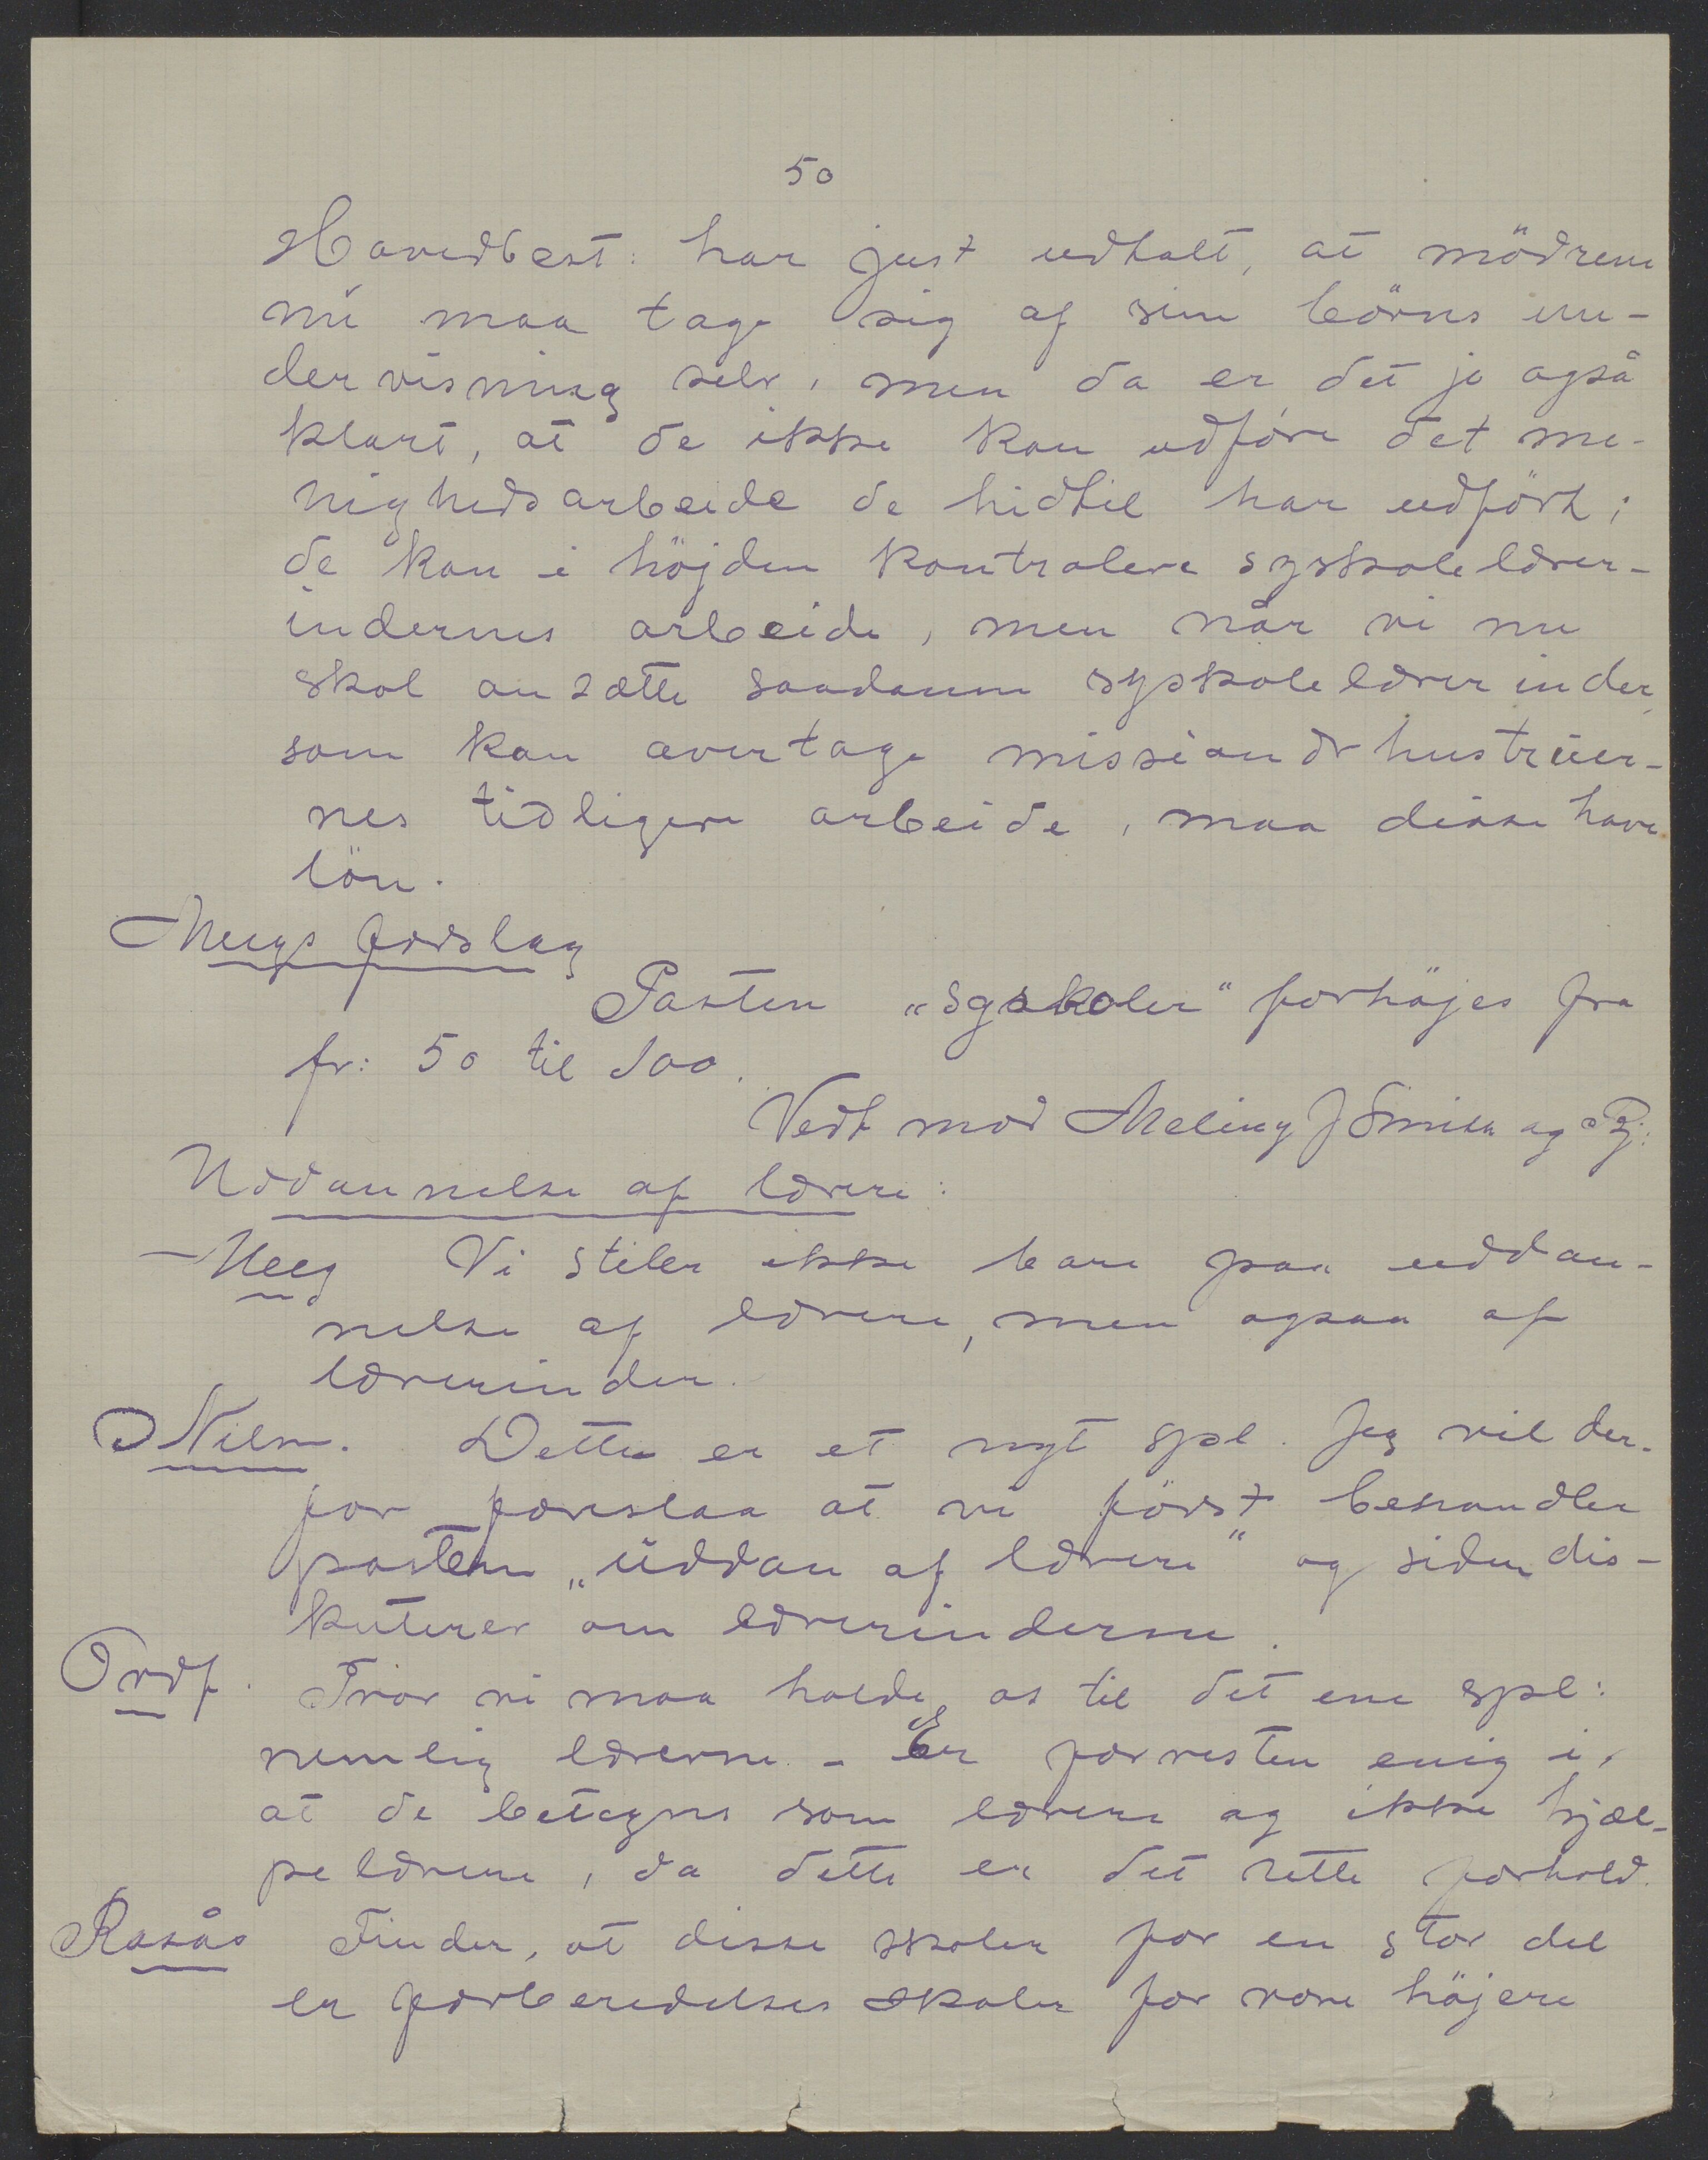 50
Hovedbest: har just udtalt, at mödrene
nu maa tage sig af sine börns un-
dervisning selv, men da er det jo også
klart, at de ikke kan udföre det me-
nighedsarbeide de hidtil har udfört;
de kan i höjden kontrolere syskolelærer-
indernes arbeide, men når vi nu
skal ansætte saadanne syskolelærerinder,
som kan overtage missionærhustruer-
nes tidligere arbeide, maa disse have
lön.
Meegs forslag
Posten „syskoler“ forhöjes fra
fr: 50 til 100.
Vedt mod Meling J Smith og
Uddannelse af lærere:
Meeg Vi stiler ikke bare paa uddan-
nelse af lærere, men ogsaa af
lærerinder.
Nilsn. Dette er et nyt spl. Jeg vil der-
for foreslaa at vi först behandler
posten „uddan af lærere“ og siden dis-
kuterer om lærerinderne.
Ordf. Tror vi maa holde os til det ene spl:
nemlig lærerne. - Er forresten enig i,
at de betegnes som lærere og ikke hjæl-
pelærere, da dette er det rette forhold.
Rosås Finder, at disse skoler for en stor del
er forberedelses skoler for vore höjere